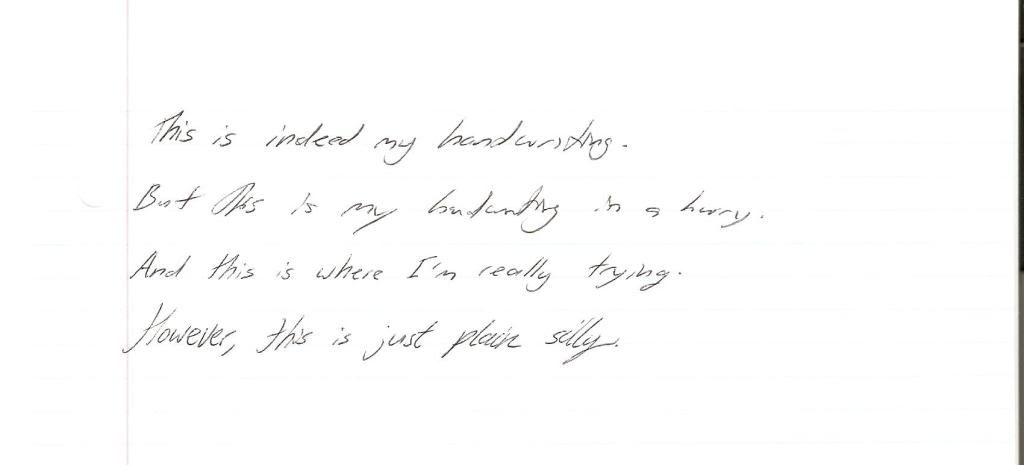 This is indeed my handwriting.
But this is my handwriting in a hurry.
And this is where I'm really trying.
However, this is just plain silly.